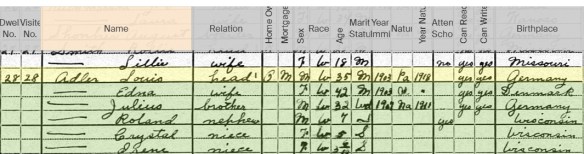 Dwel No. Visite No. Name Relation Home Ow Mortgage Sex Race Age Marit Statu Year Immi Natu Year Nat Atten Scho Can Read Can Writ Birthplace
Lillie wife F W 18 M no yes yes Missouri
28 28 Adler Louis head M W 35 M 1903 Pa 1918 yes yes Germany
Edna wife F W 42 M 1903 yes yes Denmark
Julius brother M W 32 Wd Na yes yes Germany
Roland nephew M W 7 S yes Wisconsin
Crystal niece F W S Wisconsin
Irene niece F W S Wisconsin